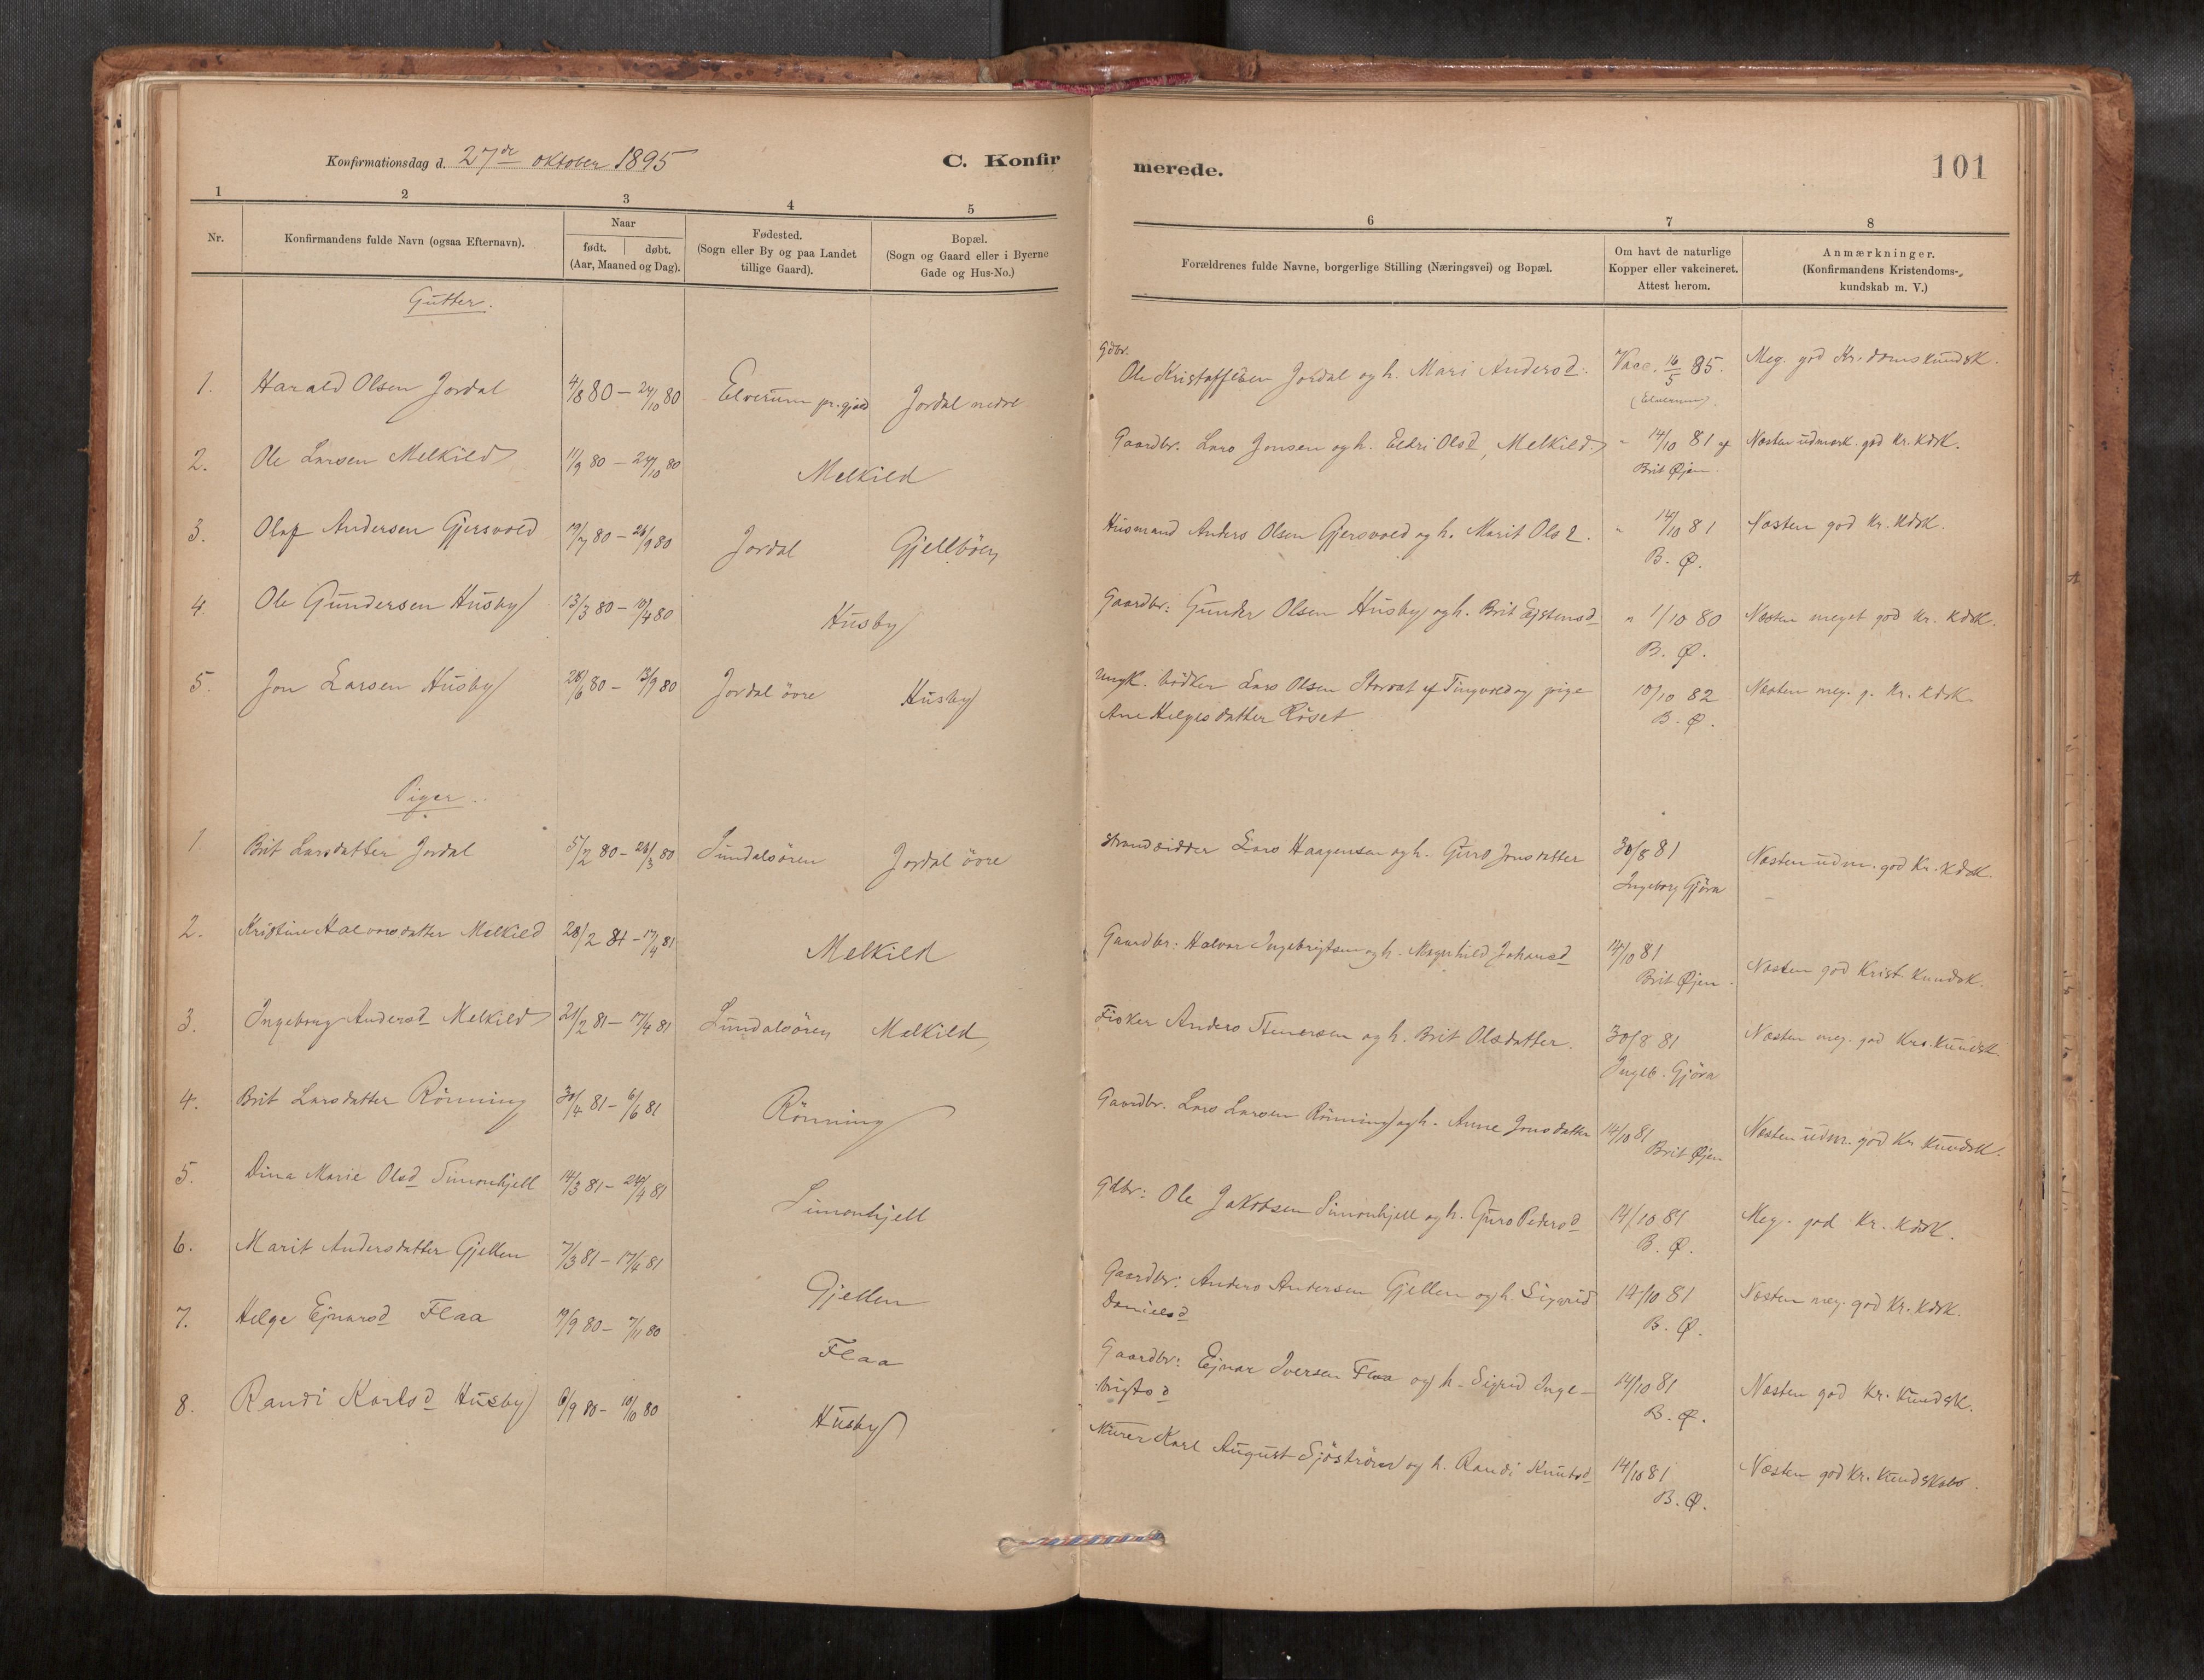 Konfirmationsdag d. 27de oktober 1895 C. Konfir merede. 101
1 2 3 4 5 6 7 8
Nr.
Konfirmandens fulde Navn (ogsaa Efternavn).
Naar
født. døbt.
(Aar, Maaned og Dag).
Fødested.
(Sogn eller By og paa Landet
tillige Gaard).
Bopæl.
(Sogn og Gaard eller i Byerne
Gade og Hus-No.)
Forældrenes fulde Navne, borgerlige Stilling (Næringsvei) og Bopæl.
Om havt de naturlige
Kopper eller vakcineret.
Attest herom.
Anmærkninger.
(Konfirmandens Kristendoms-
kundskab m. V.)
Gutter.
Gdbr.
1. Harald Olsen Jordal 4/8 80 – 24/10 80 Elverum pr.gjæld Jordal nedre Ole Kristoffersen Jordal og h. Mari Andersd. Vacc. 16/5 85. Meg. god Kr.domskundsk.
(Elverum)
2. Ole Larsen Melkild 11/9 80 – 24/10 80 Melkild Gaardbr. Lars Jonsen og h. Eldri Olsd, Melkild. " 14/10 81 af Næsten udmærk. god Kr. kdsk.
Brit Øjen.
3. Olaf Andersen Gjersvold 19/7 80 – 26/9 80 Jordal Gjellbøen Husmand Anders Olsen Gjersvold og h. Marit Olsd. " 14/10 81 Næsten god Kr. kdsk.
B. Ø.
4. Ole Gundersen Husby 13/3 80 – 10/4 80 Husby Gaardbr: Gunder Olsen Husby og h. Brit Ejstensd " 1/10 80 Næsten meget god Kr. kdsk.
B. Ø.
5. Jon Larsen Husby 28/6 80 – 13/9 80 Jordal øvre Husby Ungk. bødker Lars Olsen af Tingvold og pige 10/10 82 Næsten meg. g. Kr. kdsk.
Ane Helgesdatter Røset B. Ø.
Piger.
1. Brit Larsdatter Jordal 5/2 80 – 26/3 80 Sundalsøren Jordal øvre Strandsidder Lars Haagensen og h. Guro Jonsdatter 30/8 81 Næsten udm. god Kr. kdsk.
Ingeborg Gjøra
2. Kristine Halvorsdatter Melkild 28/2 81 – 17/4 81 Melkild Gaardbr: Halvor Ingebrigtsen og h. Magnhild Johansd 14/10 81 Næsten god Krist. kundsk.
Brit Øjen.
3. Ingeborg Andersd Melkild 21/2 81 – 17/4 81 Sundalsøren Melkild Fisker Anders Stenersen og h. Brit Olsdatter. 30/8 81 Næsten meg. god Krs. kundsk.
Ingeb. Gjøra
4. Brit Larsdatter Rønning 30/4 81 – 6/6 81 Rønning Gaardbr. Lars Larsen Rønning og h. Anne Jonsdatter 14/10 81 Næsten udm. god Kr. kundsk.
Brit Øjen
5. Dina Marie Olsd Simonhjell 14/3 81 – 24/4 81 Simonhjell Gdbr: Ole Jakobsen Simonhjell og h. Guro Pedersd 14/10 81 Meg. god Kr. kdsk.
B. Ø.
6. Marit Andersdatter Gjellen 7/3 81 – 17/4 81 Gjellen Gaardbr: Anders Andersen Gjellen og h. Sigrid 14/10 81 Næsten meg. god Kr. kdsk.
Danielsd B. Ø.
7. Helge Ejnarsd Flaa 19/9 80 – 7/11 80 Flaa Gaardbr: Ejnar Iversen Flaa og h. Sigrid Inge- 14/10 81 Næsten god Kr. kundsk.
brigtsd B. Ø.
8. Randi Karlsd Husby 6/9 80 – 10/10 80 Husby Murer Karl August Sjøstrøm og h. Randi Knutsd 14/10 81 Næsten god Kr. kundskab.
B. Ø.